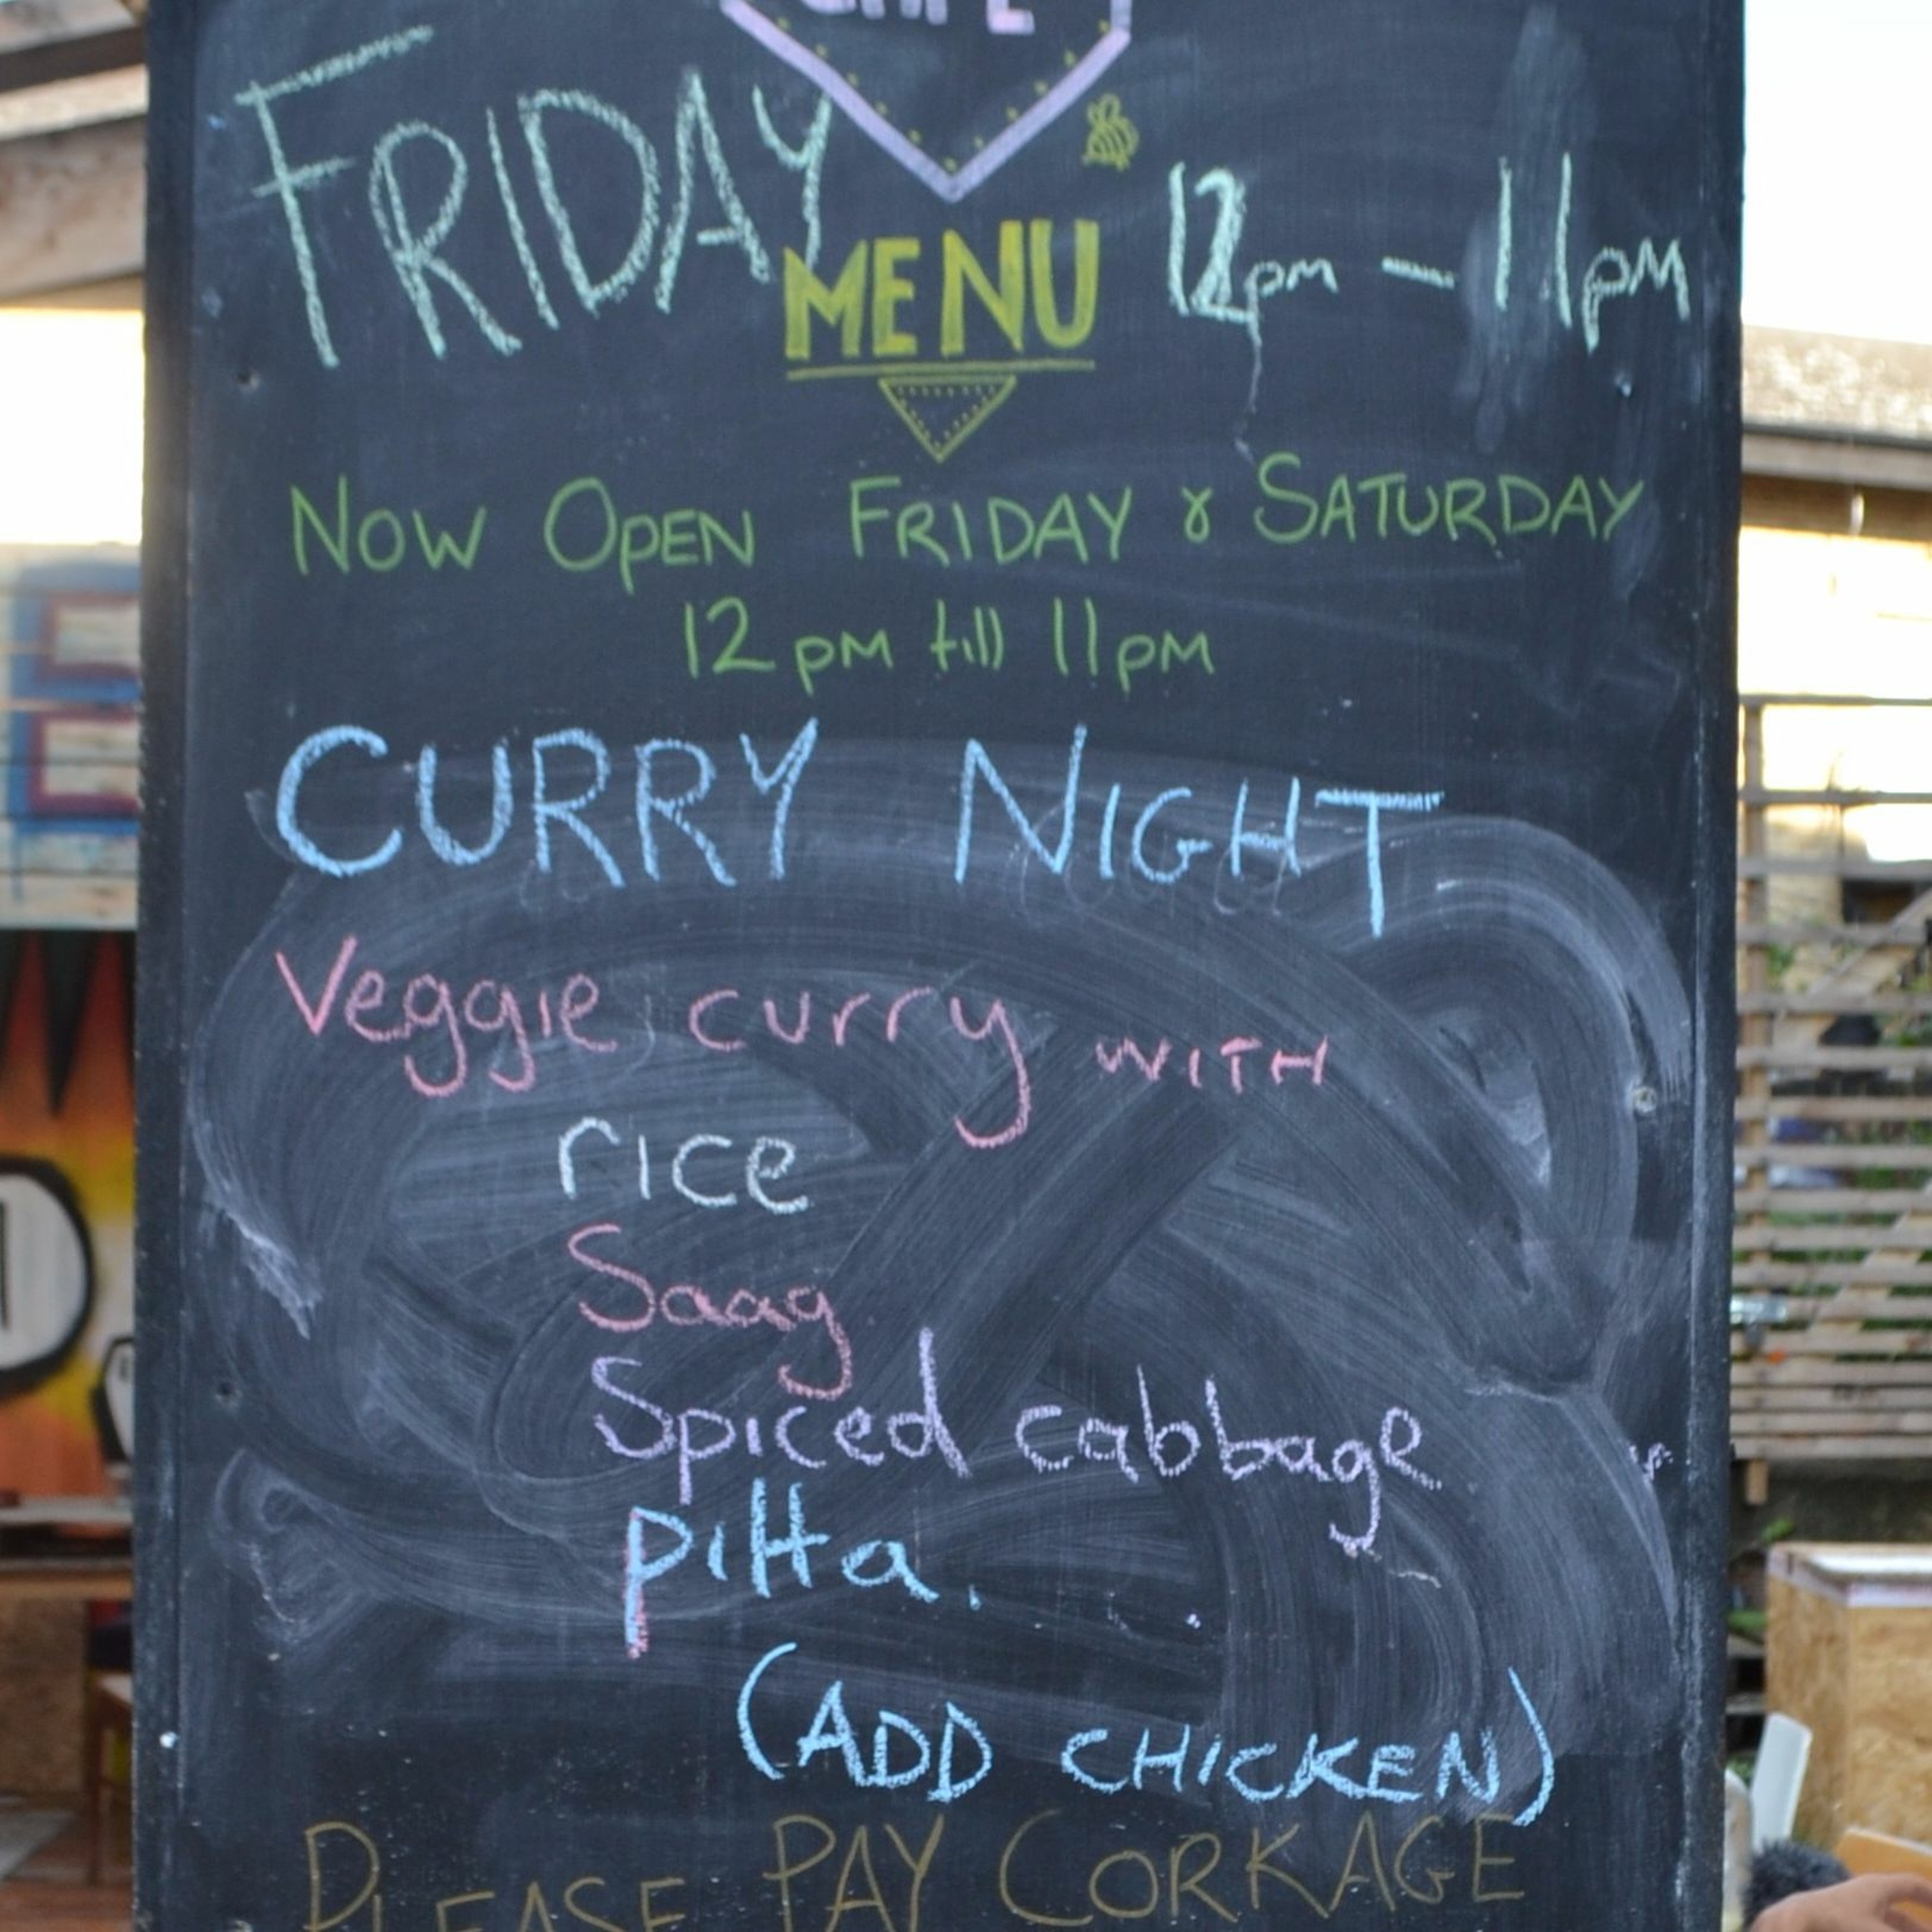 CAFE
FRIDAY
MENU
12pm - 11pm
NOW OPEN FRIDAY & SATURDAY
12pm till 11pm
CURRY NIGHT
Veggie curry WITH
rice
Saag
Spiced cabbage
pitta.
(ADD CHICKEN)
PLEASE PAY CORKAGE